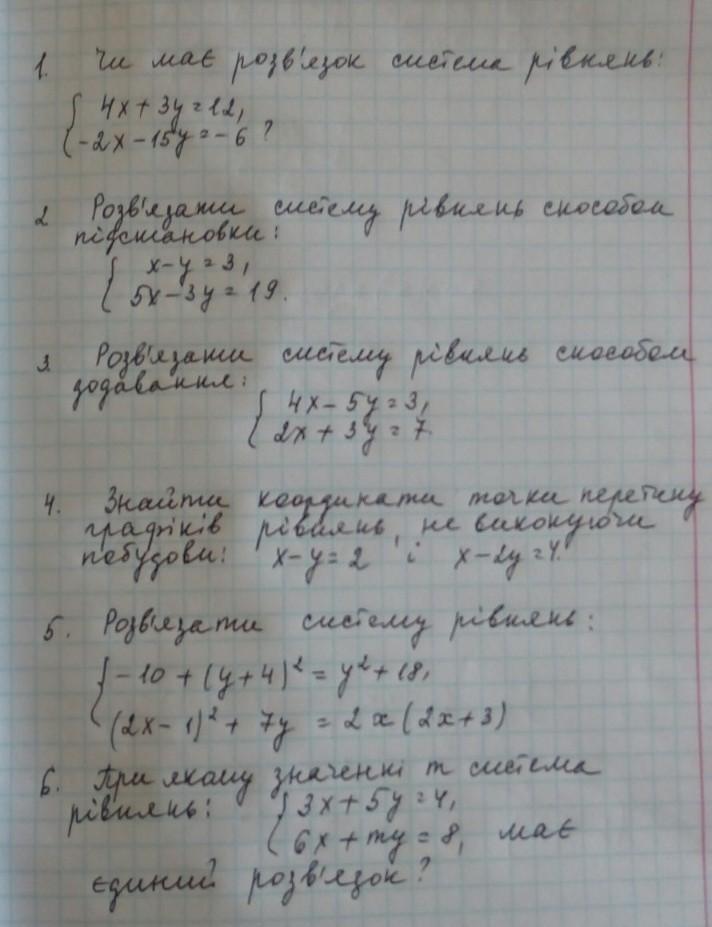 1. Чи має розв'язок система рівнянь:
4x + 3y = 12,
-2x - 15y = -6 ?
2 Розв'язати систему рівнянь способом
підстановки:
x - y = 3,
5x - 3y = 19.
3 Розв'язати систему рівнянь способом
додавання:
4x - 5y = 3,
2x + 3y = 7.
4. Знайти координати точки перетину
графіків рівнянь, не виконуючи
побудови: x - y = 2 і x - 2y = 4.
5. Розв'язати систему рівнянь:
-10 + (y + 4)² = y² + 18,
(2x - 1)² + 7y = 2x(2x + 3)
6. При якому значенні m система
рівнянь: 3x + 5y = 4,
6x + my = 8, має
єдиний розв'язок?